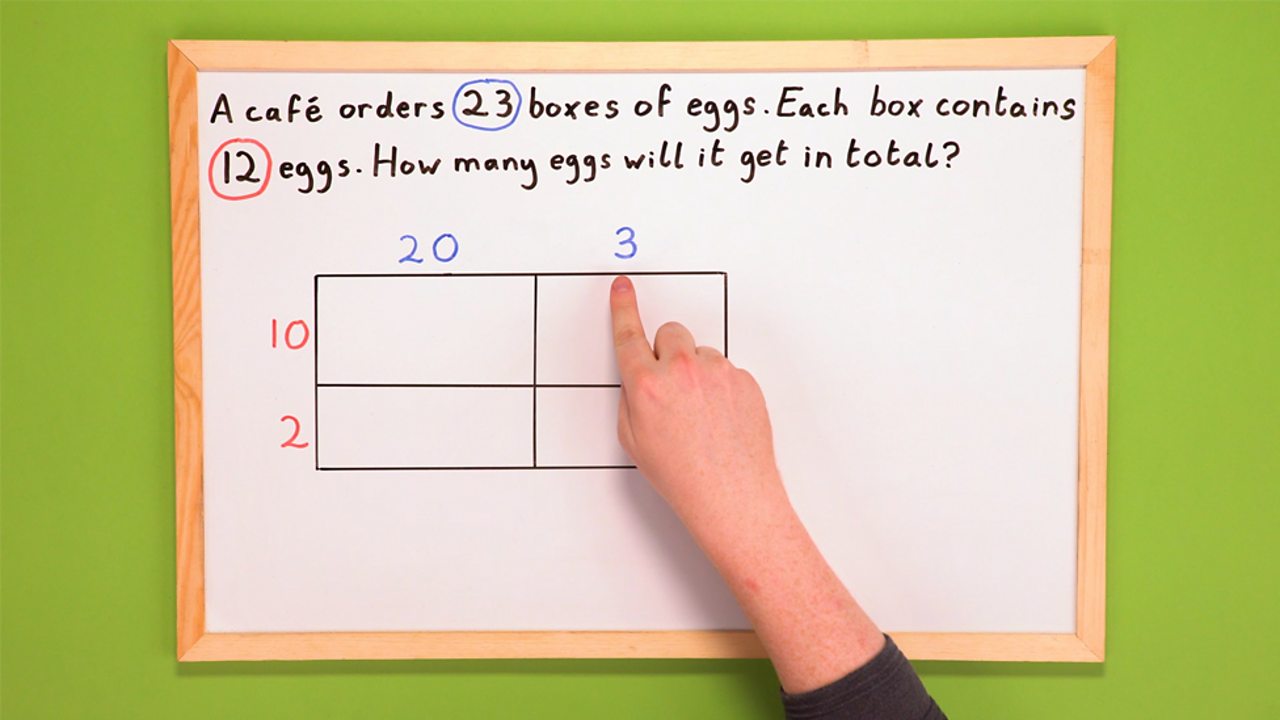 A café orders 23 boxes of eggs. Each box contains
12 eggs. How many eggs will it get in total?
20 3
10
2